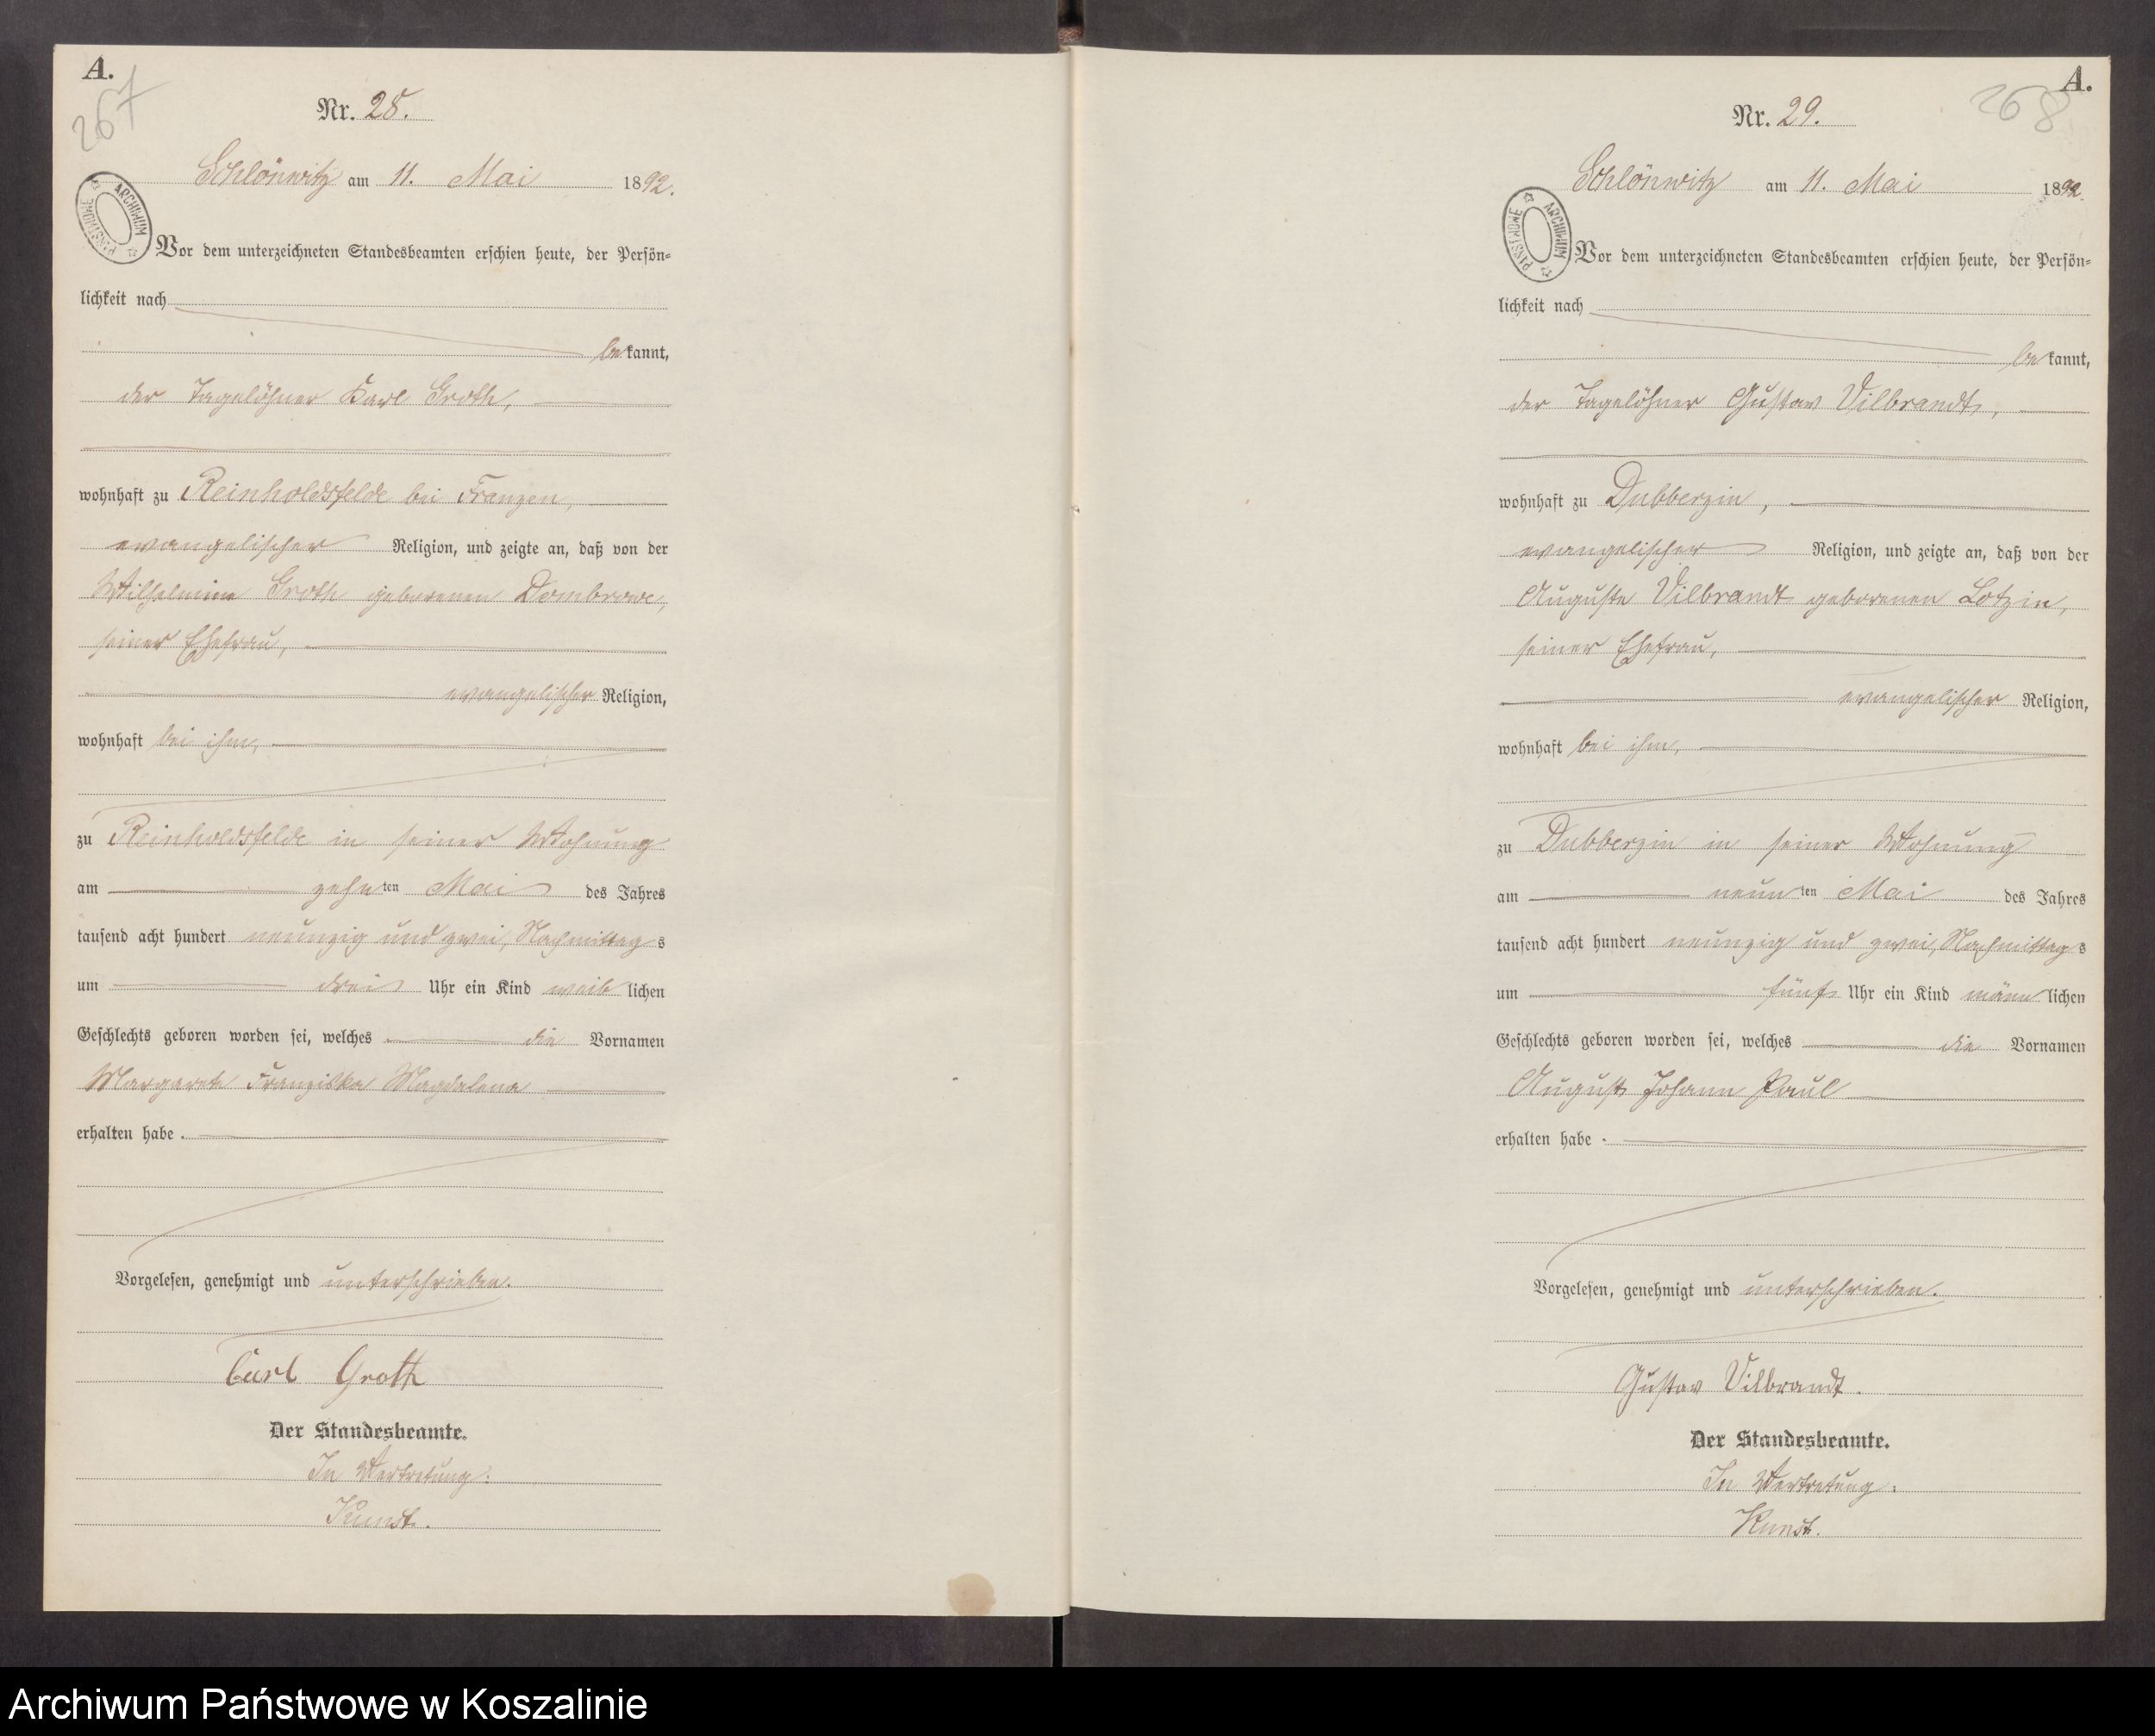 A.
267
Nr. 28.
Schlönwitz am 11. Mai 1892.
ARCHIWUM PAŃSTWOWE
Vor dem unterzeichneten Standesbeamten erschien heute, der Persön=
lichkeit nach
bekannt,
der Tagelöhner Karl Groth,
wohnhaft zu Reinholdsfelde bei Franzen,
evangelischer Religion, und zeigte an, daß von der
Wilhelmine Groth geborenen Dombrowe,
seiner Ehefrau,
evangelischer Religion,
wohnhaft bei ihm,
zu Reinholdsfelde in seiner Wohnung
am zehnten Mai des Jahres
tausend acht hundert neunzig und zwei, Nachmittags
um drei Uhr ein Kind weiblichen
Geschlechts geboren worden sei, welches die Vornamen
Margarete Franziska Magdalena
erhalten habe.
Vorgelesen, genehmigt und unterschrieben.
Carl Groth
Der Standesbeamte.
In Vertretung:
Kunst.
A.
268
Nr. 29.
Schlönwitz am 11. Mai 1892.
ARCHIWUM PAŃSTWOWE
Vor dem unterzeichneten Standesbeamten erschien heute, der Persön=
lichkeit nach
bekannt,
der Tagelöhner Gustav Vilbrandt,
wohnhaft zu Dubberzin,
evangelischer Religion, und zeigte an, daß von der
Auguste Vilbrandt geborenen Lotzin,
seiner Ehefrau,
evangelischer Religion,
wohnhaft bei ihm,
zu Dubberzin in seiner Wohnung
am neunten Mai des Jahres
tausend acht hundert neunzig und zwei, Nachmittags
um fünf Uhr ein Kind männlichen
Geschlechts geboren worden sei, welches die Vornamen
August Johann Paul
erhalten habe.
Vorgelesen, genehmigt und unterschrieben.
Gustav Vilbrandt.
Der Standesbeamte.
In Vertretung:
Kunst.
Archiwum Państwowe w Koszalinie